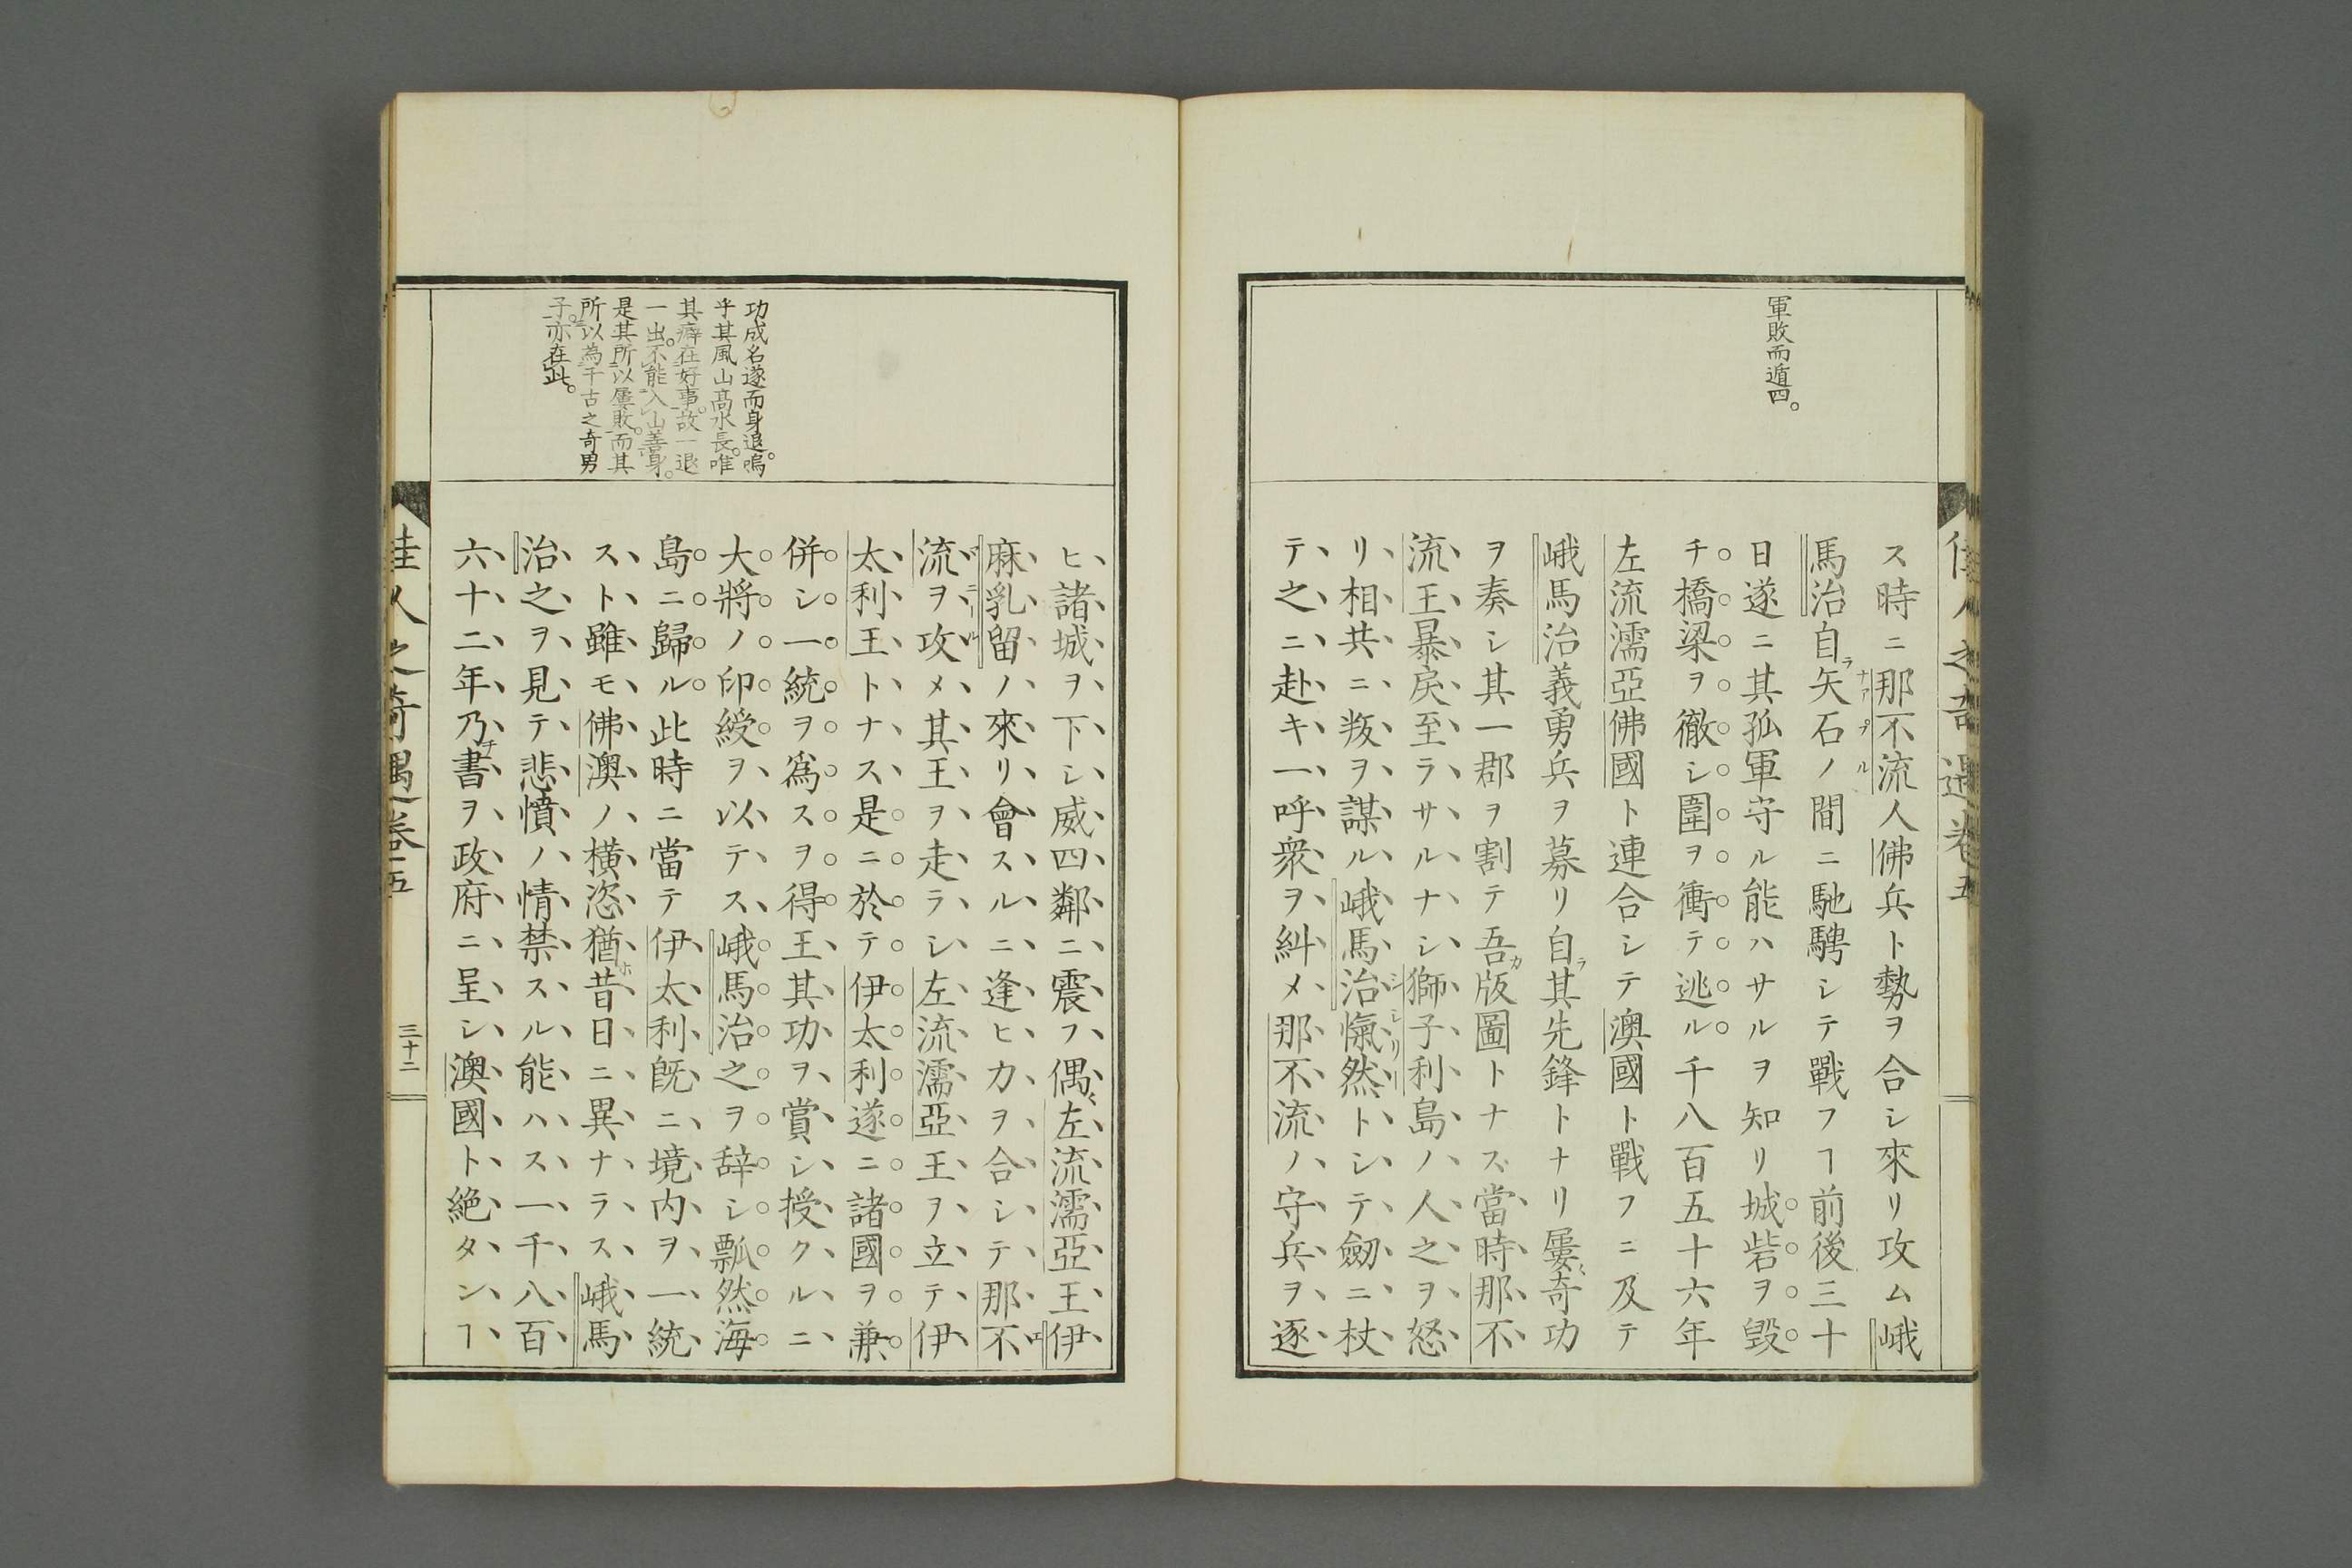 軍敗而遁四。
ス時ニ那不流人佛兵ト勢ヲ合シ來リ攻ム峨
馬治自ラ矢石ノ間ニ馳騁シテ戰フヿ前後三十
日遂ニ其孤軍守ル能ハサルヲ知リ城砦ヲ毀
チ橋梁ヲ徹シ圍ヲ衝テ逃ル千八百五十六年
左流濡亞佛國ト連合シテ澳國ト戰フニ及テ
峨馬治義勇兵ヲ募リ自ラ其先鋒トナリ屢〻奇功
ヲ奏シ其一郡ヲ割テ吾カ版圖トナス當時那不
流王暴戾至ラサルナシ獅子利島ノ人之ヲ怒
リ相共ニ叛ヲ謀ル峨馬治愾然トシテ劒ニ杖
テ之ニ赴キ一呼衆ヲ糾メ那不流ノ守兵ヲ逐
佳人之奇遇卷五
功成名遂而身退。嗚
乎其風山高水長。唯
其癖在好事。故一退
一出。不能入山善身。
是其所以屢敗。而其
所以為千古之奇男
子。亦在此。
ヒ諸城ヲ下シ威四鄰ニ震フ偶〻左流濡亞王伊
麻乳留ノ來リ會スルニ逢ヒ力ヲ合シテ那不
流ヲ攻メ其王ヲ走ラシ左流濡亞王ヲ立テ伊
太利王トナス是ニ於テ伊太利遂ニ諸國ヲ兼
併シ一統ヲ爲スヲ得王其功ヲ賞シ授クルニ
大將ノ印綬ヲ以テス峨馬治之ヲ辞シ瓢然海
島ニ歸ル此時ニ當テ伊太利既ニ境內ヲ一統
スト雖モ佛澳ノ橫恣猶ホ昔日ニ異ナラス峨馬
治之ヲ見テ悲憤ノ情禁スル能ハス一千八百
六十二年乃チ書ヲ政府ニ呈シ澳國ト絶タンヿ
佳人之奇遇卷五
三十二